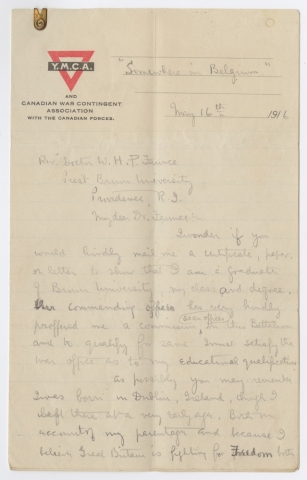 Y.M.C.A.
AND
CANADIAN WAR CONTINGENT
ASSOCIATION
WITH THE CANADIAN FORCES.
"Somewhere in Belgium"
May 16th 1916.
Rev. Doctor W. H. P. Faunce
Brown University
Providence, R. I.
My dear Dr.
I wonder if you
would kindly mail me a certificate, paper
or letter to show that I am a graduate
of Brown University, my class and degree.
commanding officer has very kindly
proffered me a commission, in this Battalion
and to qualify for same I must satisfy the
war office as to my Educational qualifications
as possibly you may remember
I was born in Dublin, Ireland, though I
left there at a very early age. Both on
account of my parentage and because I
believe Great Britain is fighting for Freedom both